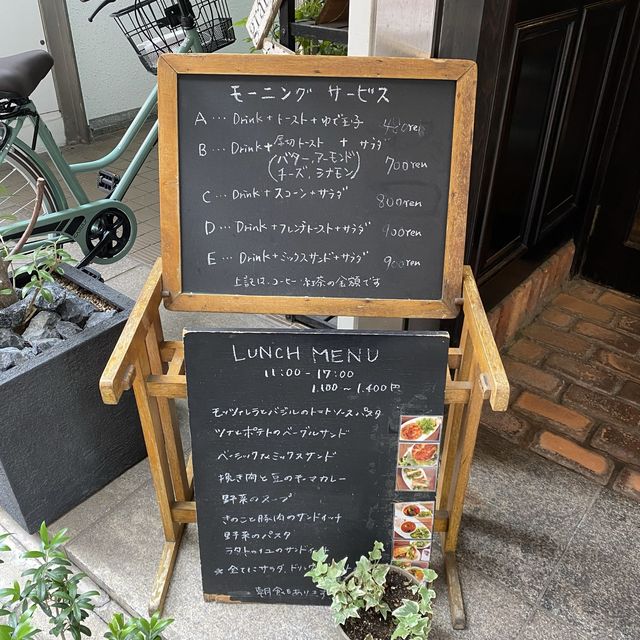 モーニング サービス
A … Drink + トースト + ゆで玉子
B … Drink + 厚切トースト + サラダ 700yen
(バター、アーモンド
チーズ、シナモン)
C … Drink + スコーン + サラダ 800yen
D … Drink + フレンチトースト + サラダ 900yen
E … Drink + ミックスサンド + サラダ 900yen
上記は、コーヒー、紅茶の金額です
LUNCH MENU
11:00 - 17:00
1.100 ~ 1.400円
モッツァレラとバジルのトマトソースパスタ
ツナとポテトのベーグルサンド
ベーシックなミックスサンド
挽き肉と豆のキーマカレー
野菜のスープ
きのこと豚肉のサンドイッチ
野菜のパスタ
ラタトゥイユのサンド
※ 全てにサラダ、ドリ